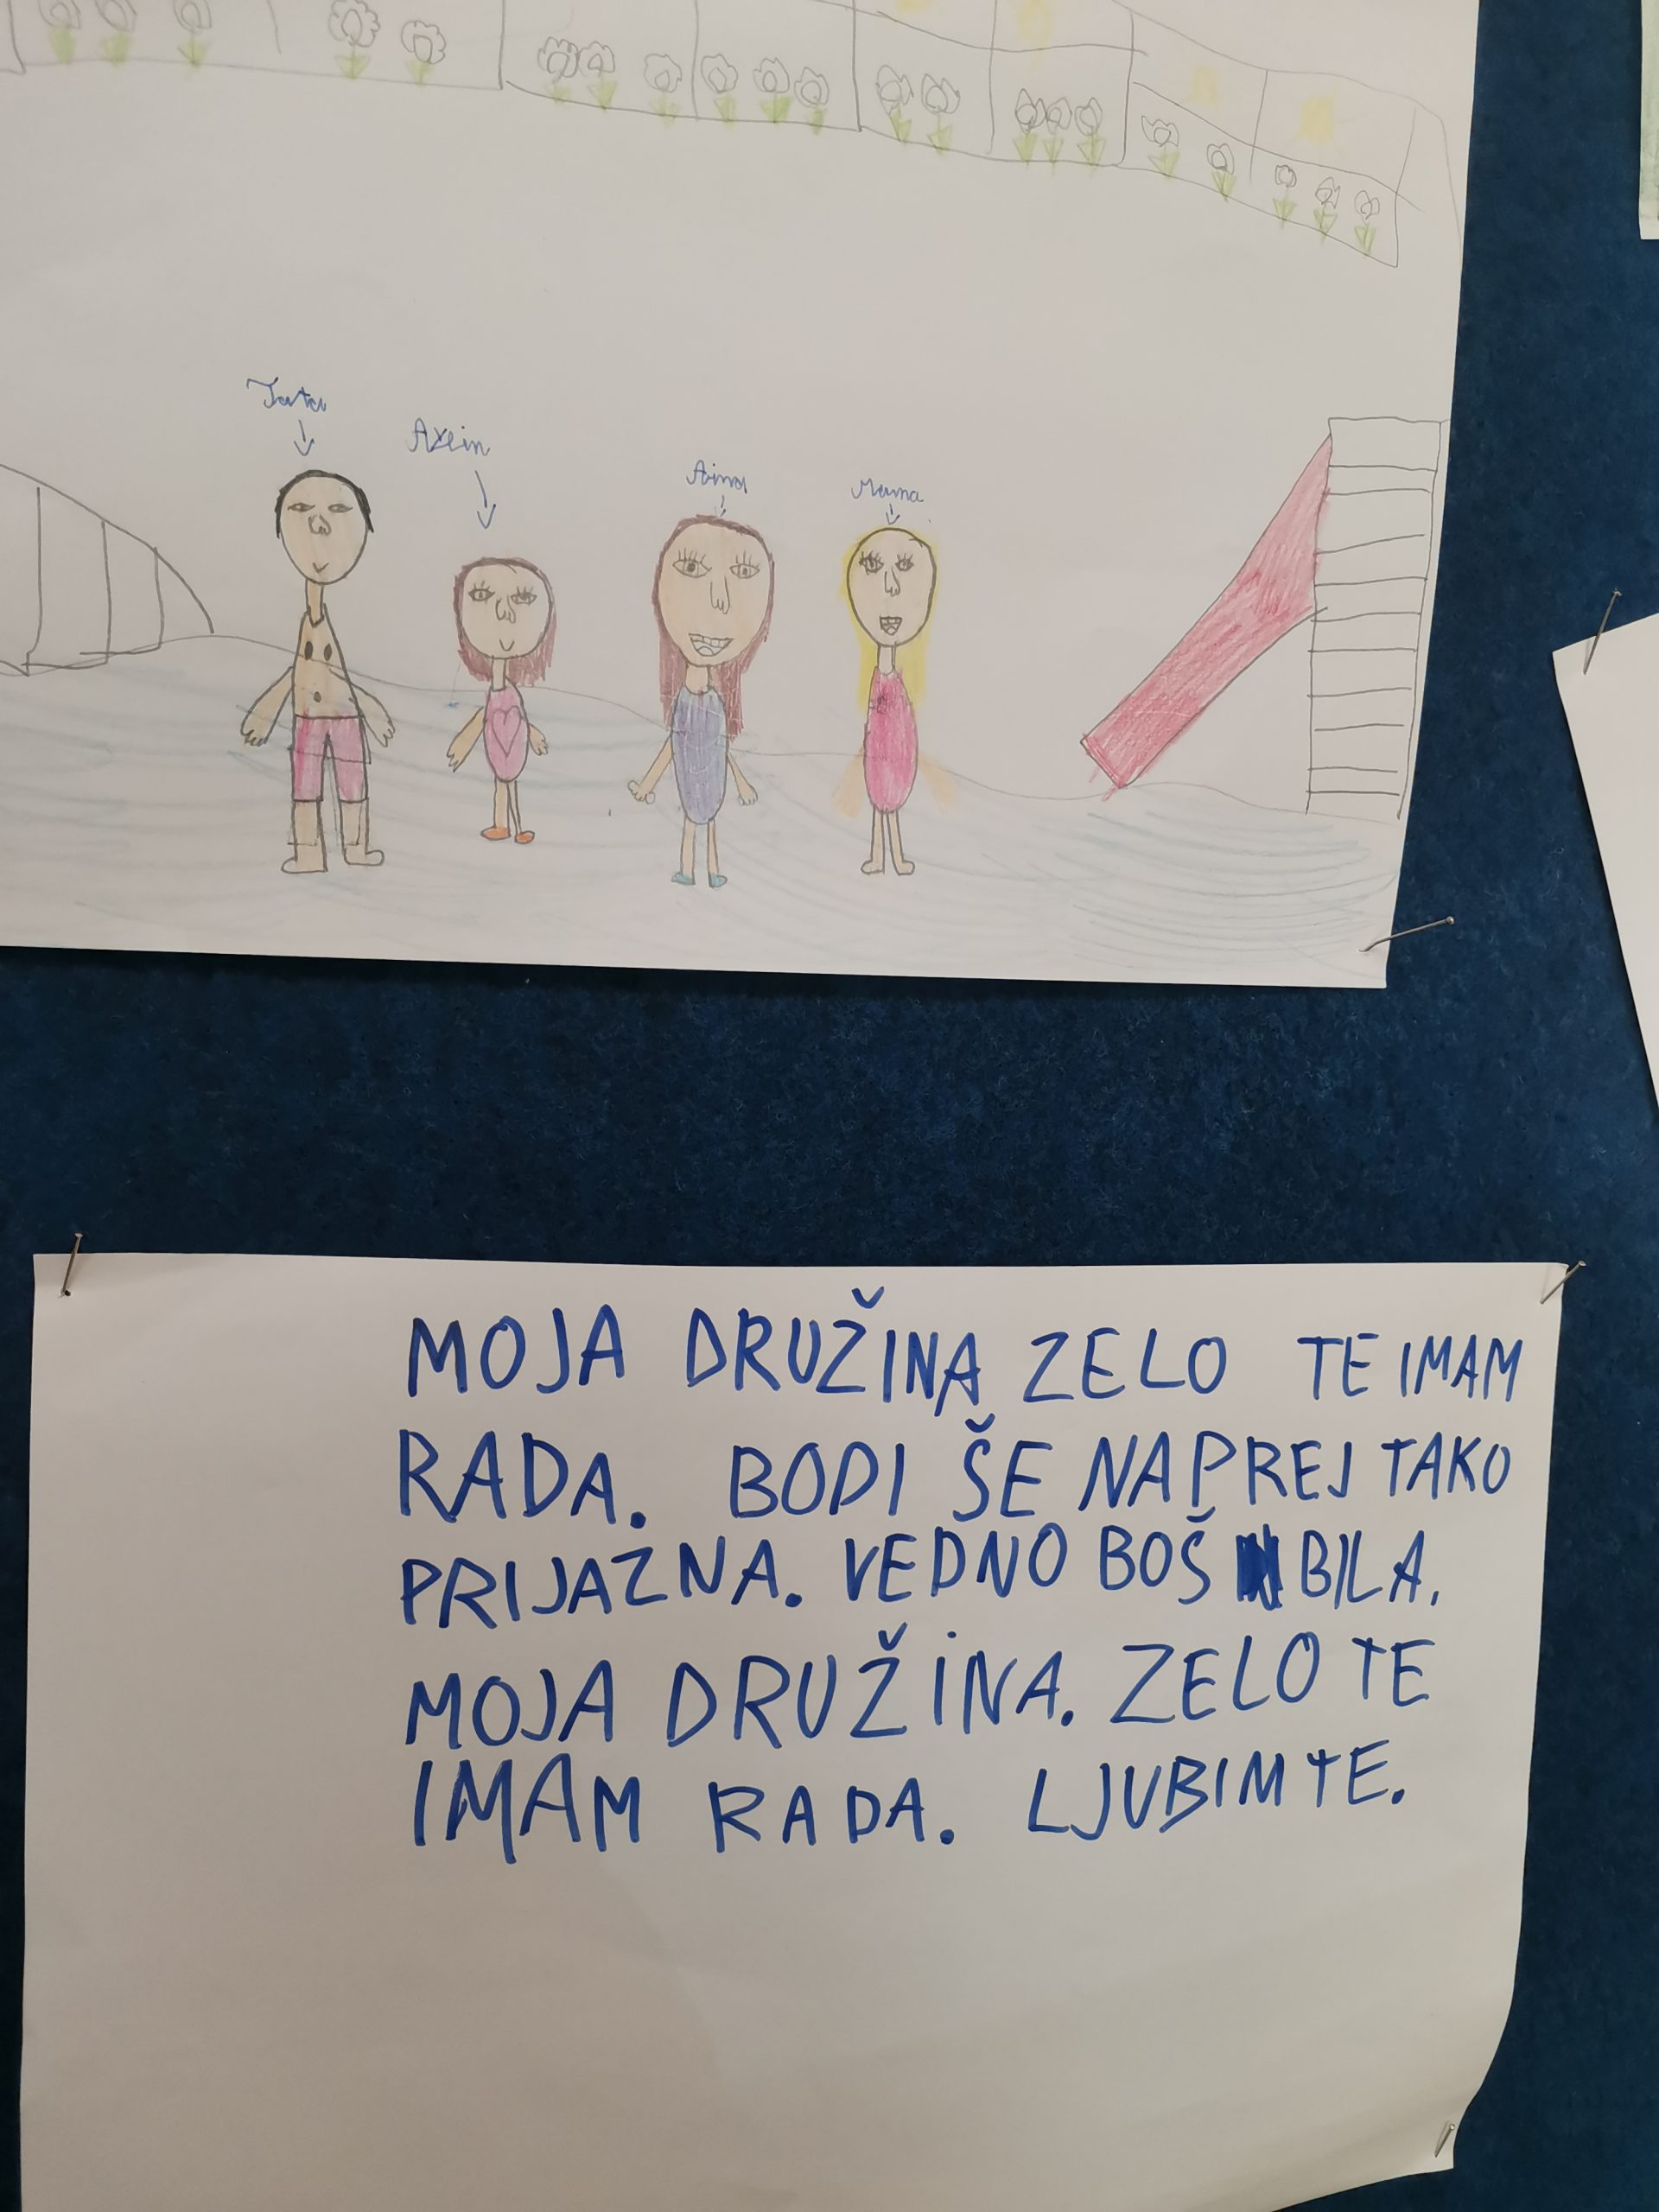 Tata
Mama
MOJA DRUŽINA ZELO TE IMAM
RADA. BODI ŠE NAPREJ TAKO
PRIJAZNA. VEDNO BOŠ BILA.
MOJA DRUŽINA. ZELO TE
IMAM RADA. LJUBIM TE.